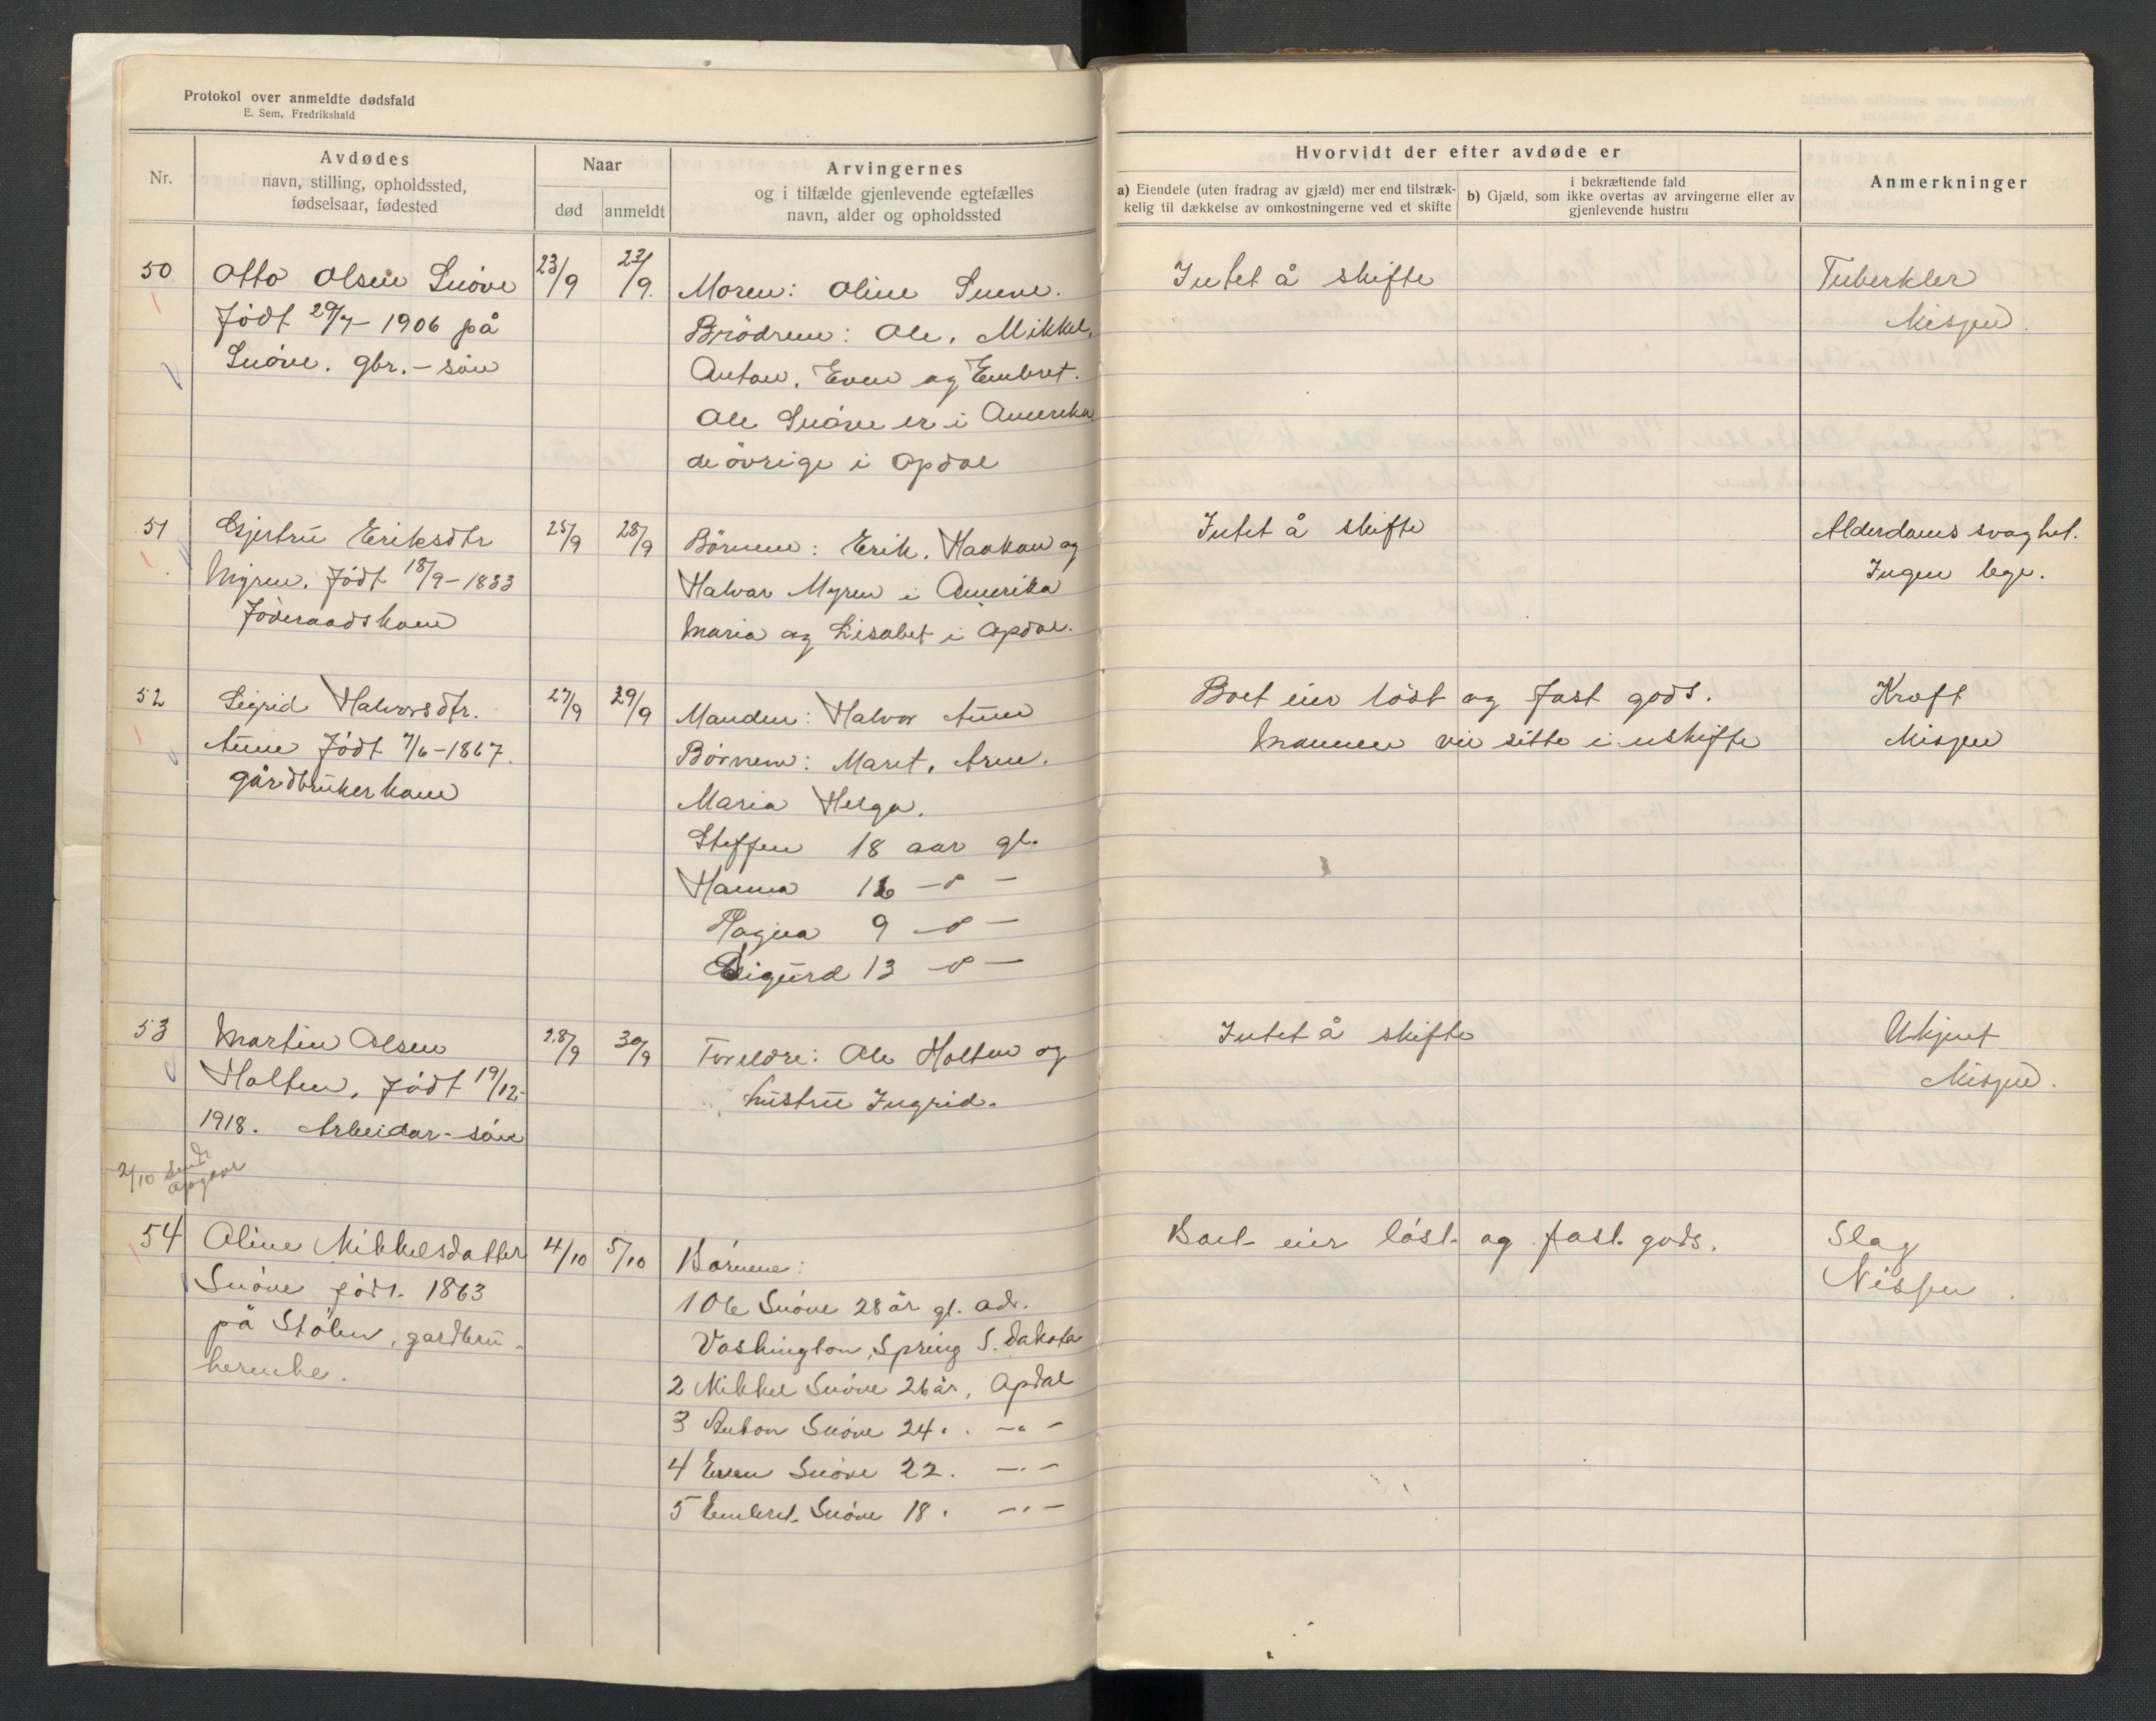 Protokol over anmeldte dødsfald
E. Sem, Fredrikshald
Nr.
Avdødes
navn, stilling, opholdssted,
fødselsaar, fødested
Naar
død
anmeldt
Arvingernes
og i tilfælde gjenlevende egtefælles
navn, alder og opholdssted
Hvorvidt der efter avdøde er
a) Eiendele (uten fradrag av gjæld) mer end tilstræk-
kelig til dækkelse av omkostningerne ved et skifte
i bekræftende fald
b) Gjæld, som ikke overtas av arvingerne eller av
gjenlevende hustru
Anmerkninger
50
Otto Olsen Snöve
Födt 29/7 - 1906 på
Snöve. gbr. - sön
23/9
23/9.
Moren: Oline Snøve.
Brödrene: Ole, Mikkel,
Anton, Even og Embret.
Ole Snöve er i Amerika
de övrige i Opdal
Intet å skifte
Tuberkler
Nissen.
51
Gjertru Eriksdtr
Myren. Födt 18/9 - 1833
Föderaadskone
25/9
28/9
Börnene: Erik, Haakon og
Halvar Myren i Amerika
Maria og Lisabet i Opdal.
Intet å skifte
Alderdomssvaghet.
Ingen lege.
52
Sigrid Halvorsdtr.
Aune Födt 7/6 - 1867.
gårdbrukerkone
27/9
29/9
Manden: Halvor Aune
Börnene: Marit, Arne.
Maria Helga.
Steffen 18 aar gl.
Hanna 16 - " -
Magna 9 - " -
Sigurd 13 - " -
Boet eier löst og fast gods.
Mannen vil sitte i uskifte
Kreft
Nissen
53
Martin Olsen
Holten, Födt 19/12-
1918. Arbeidar-sön
28/9
30/9
Foreldre: Ole Holten og
hustru Ingrid.
Intet å skifte
Ukjent
Nissen.
2/10 Sendt
Opgave
54
Oline Mikkelsdatter
Snöve födt. 1863
på Stölen, gardbru-
kerenke.
4/10
5/10
Börnene:
1 Ole Snöve 28 år gl. adr.
Vashington, Spring S. Dakota
2 Mikkel Snöve 26 år, Opdal
3 Anton Snöve 24 " - " -
4 Even Snöve 22. - " -
5 Embret Snöve 18 " - " -
Boet eier löst og fast gods.
Slag
Nissen.